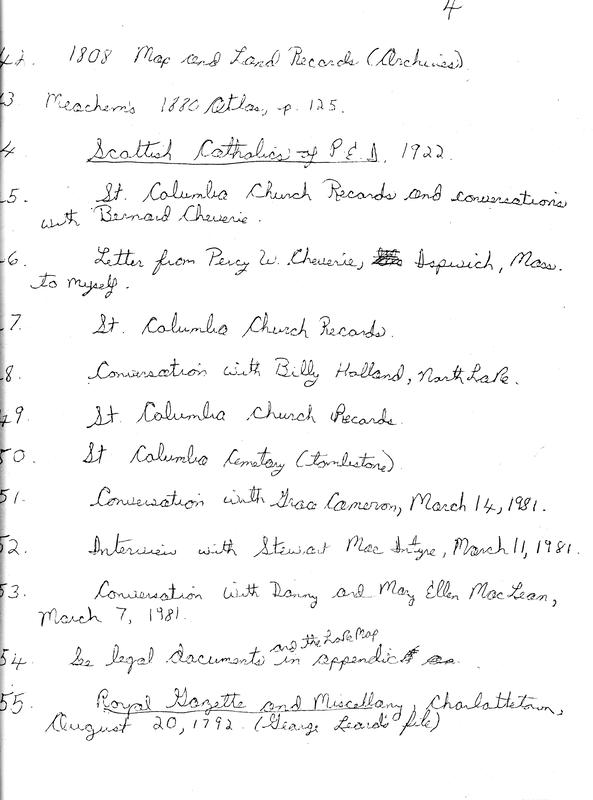 4
42. 1808 Map and Land Records (Archives)
3 Meachem's 1880 Atlas, p. 125.
4 Scottish Catholics of P.E.I. 1922.
5. St. Columba Church Records and conversations
with Bernard Cheverie.
6. Letter from Percy W. Cheverie, Ipswich, Mass.
to myself.
7. St. Columba Church Records.
8. Conversation with Billy Holland, North Lake.
49. St. Columba Church Records.
50. St Columba Cemetary (tombstone)
51. Conversation with Grace Cameron, March 14, 1981.
52. Interview with Stewart MacIntyre, March 11, 1981.
53. Conversation with Danny and May Ellen MacLean,
March 7, 1981.
and the Lake Map
54. See legal documents in appendic
55. Royal Gazette and Miscellany, Charlottetown,
August 20, 1792. (George Leard's file)